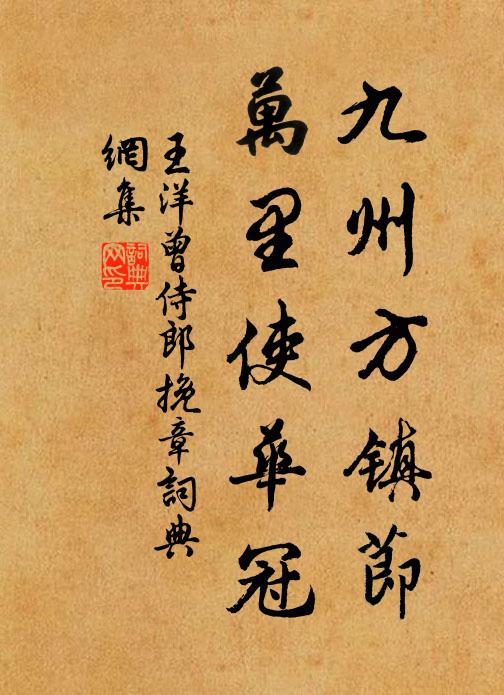 九州方镇節
萬里使華冠
王洋曾侍郎挽章詞典
網集
詞典
网印